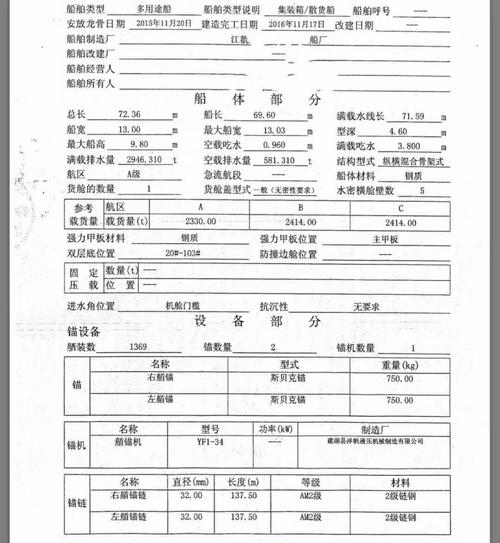 船舶类型 多用途船 船舶类型说明 集装箱/散货船 船舶呼号 —
安放龙骨日期 2015年11月20日 建造完工日期 2016年11月17日 改建日期 ——
船舶制造厂 江 船厂
船舶改建厂
船舶经营人
船舶所有人
船体部分
总长 72.36 m 船长 69.60 m 满载水线长 71.59 m
船宽 13.00 m 最大船宽 13.03 m 型深 4.60 m
最大船高 9.80 m 空载吃水 0.960 m 满载吃水 3.800 m
满载排水量 2946.310 t 空载排水量 581.310 t 结构型式 纵横混合骨架式
航区 A级 急流航段 —— 船体材料 钢质
货舱的数量 1 货舱盖型式 一般(无密性要求) 水密横舱壁数 5
参考载货量 航区 A B C
载货量(t) 2330.00 2414.00 2414.00
强力甲板材料 钢质 强力甲板位置 主甲板
双层底位置 20#-103# 防撞边舱位置 ——
固定压载 数量(t) ——
位置 ——
进水角位置 机舱门槛 抗沉性 无要求
设备部分
锚设备
舾装数 1369 锚数量 2 锚机数量 1
锚 名称 型式 重量(kg)
右艏锚 斯贝克锚 750.00
左艏锚 斯贝克锚 750.00
锚机 名称 型号 功率(kW) 制造厂
艏锚机 YF1-34 —— 建湖县洋帆液压机械制造有限公司
锚链 名称 直径(mm) 长度(m) 等级 材料
右艏锚链 32.00 137.50 AM2级 2级链钢
左艏锚链 32.00 137.50 AM2级 2级链钢